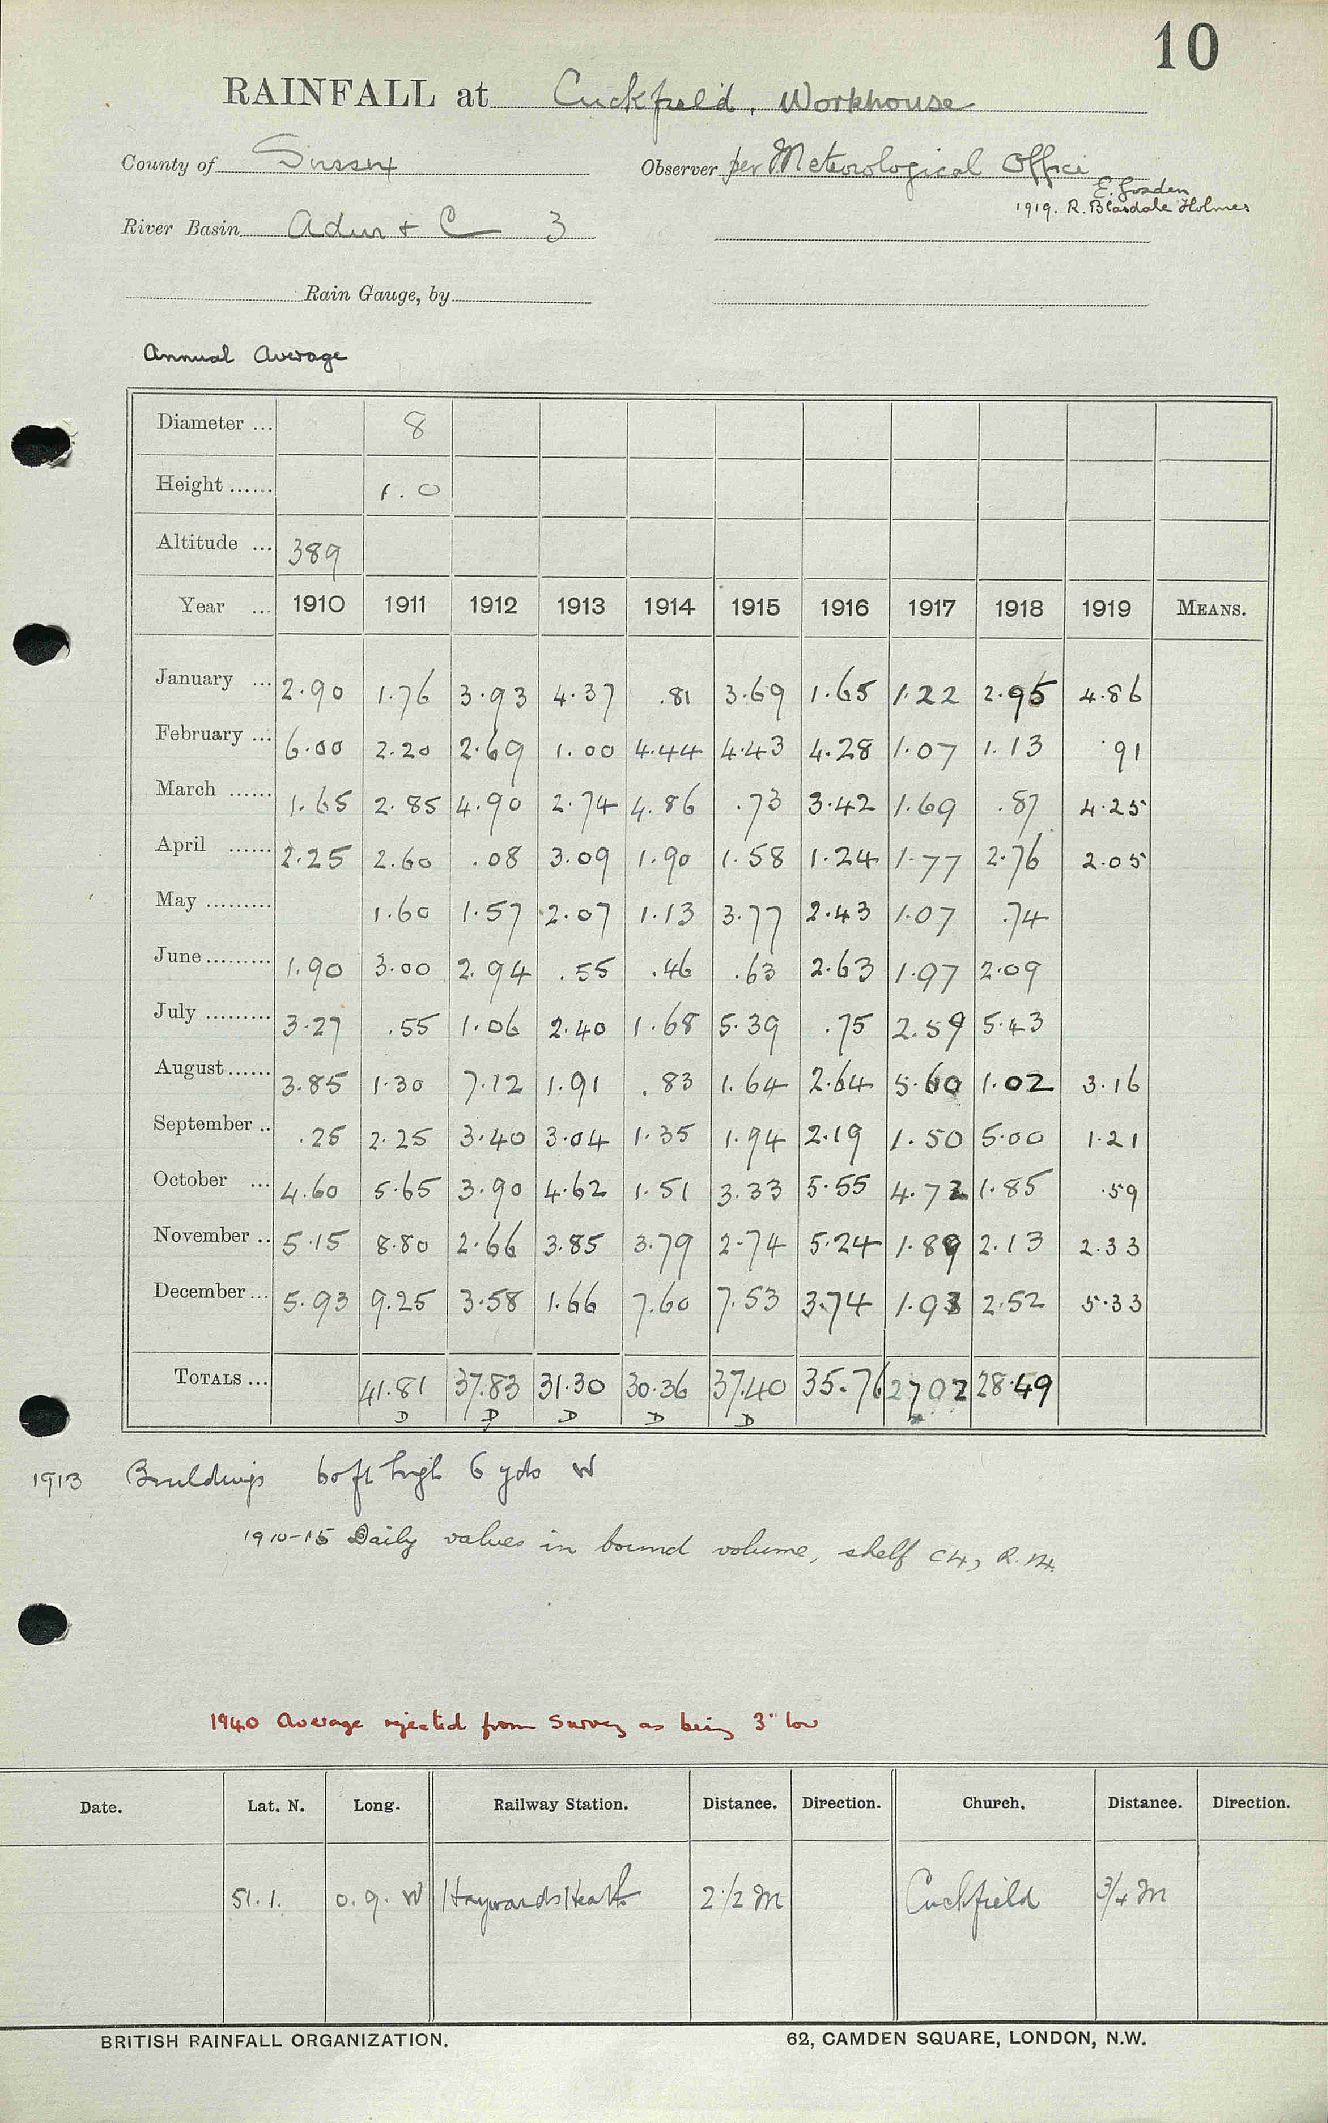 10
RAINFALL at Cuckfield, Workhouse
County of Sussex Observer per Meteorological Office
E. Gosden
1919. R. Blasdale Holmes
River Basin Adur + C 3
Rain Gauge, by
Annual Average
Diameter ... 8
Height ...... 1.0
Altitude ... 389
Year ... 1910 1911 1912 1913 1914 1915 1916 1917 1918 1919 MEANS.
January ... 2.90 1.76 3.93 4.37 .81 3.69 1.65 1.22 2.95 4.86
February ... 6.00 2.20 2.69 1.00 4.44 4.43 4.28 1.07 1.13 .91
March ...... 1.65 2.85 4.90 2.74 4.86 .73 3.42 1.69 .87 4.25
April ...... 2.25 2.60 .08 3.09 1.90 1.58 1.24 1.77 2.76 2.05
May ......... 1.60 1.57 2.07 1.13 3.77 2.43 1.07 .74
June ......... 1.90 3.00 2.94 .55 .46 .63 2.63 1.97 2.09
July ......... 3.27 .55 1.06 2.40 1.68 5.39 .75 2.59 5.43
August ...... 3.85 1.30 7.12 1.91 .83 1.64 2.64 5.60 1.02 3.16
September .. .25 2.25 3.40 3.04 1.35 1.94 2.19 1.50 5.00 1.21
October ... 4.60 5.65 3.90 4.62 1.51 3.33 5.55 4.72 1.85 .59
November .. 5.15 8.80 2.66 3.85 3.79 2.74 5.24 1.89 2.13 2.33
December ... 5.93 9.25 3.58 1.66 7.60 7.53 3.74 1.93 2.52 5.33
TOTALS ... 41.81 37.83 31.30 30.36 37.40 35.76 27.02 28.49
D D D D D
1913 Buildings 60ft high 6 yds W
1910-15 Daily values in bound volume, shelf C4, R.14.
1940 Average rejected from Survey as being 3" low
Date. Lat. N. Long. Railway Station. Distance. Direction. Church. Distance. Direction.
51.1. 0.9. W Haywards Heath 2 1/2 M Cuckfield 3/4 M
BRITISH RAINFALL ORGANIZATION. 62, CAMDEN SQUARE, LONDON, N.W.